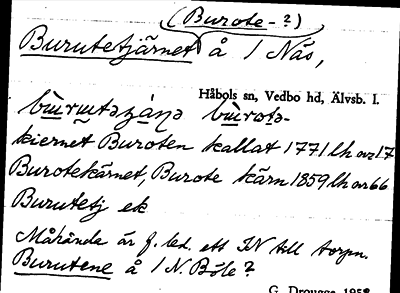 (Burote-?)
Burutetjärnet å 1 Näs,
Håbols sn, Vedbo hd, Älvsb. l.
kiernet Buroten kallat 1771 lh nr 17
Burotekärnet, Burote kärn 1859 lh nr 66
Burutetj ek
Måhända är f. led. ett ON till torpn.
Burutene å 1 N. Böle?
G. Drougge 1958